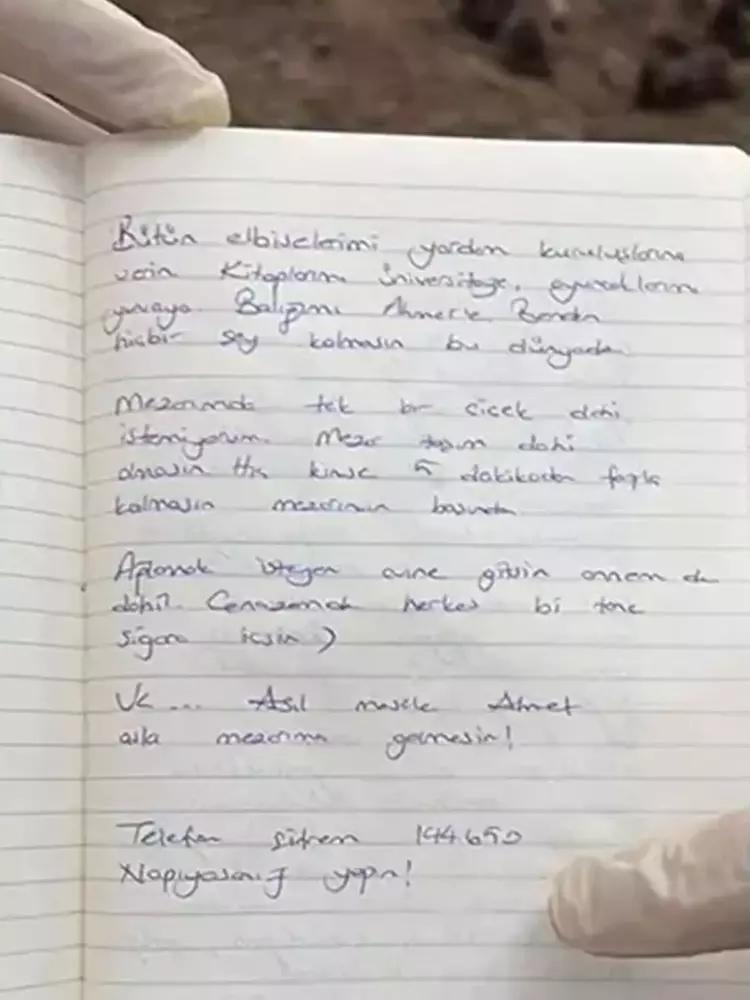 Bütün elbiselerimi yardım kuruluşlarına
verin Kitaplarımı üniversiteye, oyuncaklarımı
yuvaya Balığımı Ahmet'e Benden
hiçbir şey kalmasın bu dünyada.
Mezarımda tek bir çiçek dahi
istemiyorum. Mezar taşım dahi
olmasın Hiç kimse 5 dakikadan fazla
kalmasın mezarımın başında
Ağlamak isteyen evine gitsin annem de
dahil. Cenazemde herkes bi tane
sigara içsin )
Ve ... Asıl mesele Ahmet
asla mezarıma gelmesin!
Telefon şifrem 144690
Napıyosanız yapın!